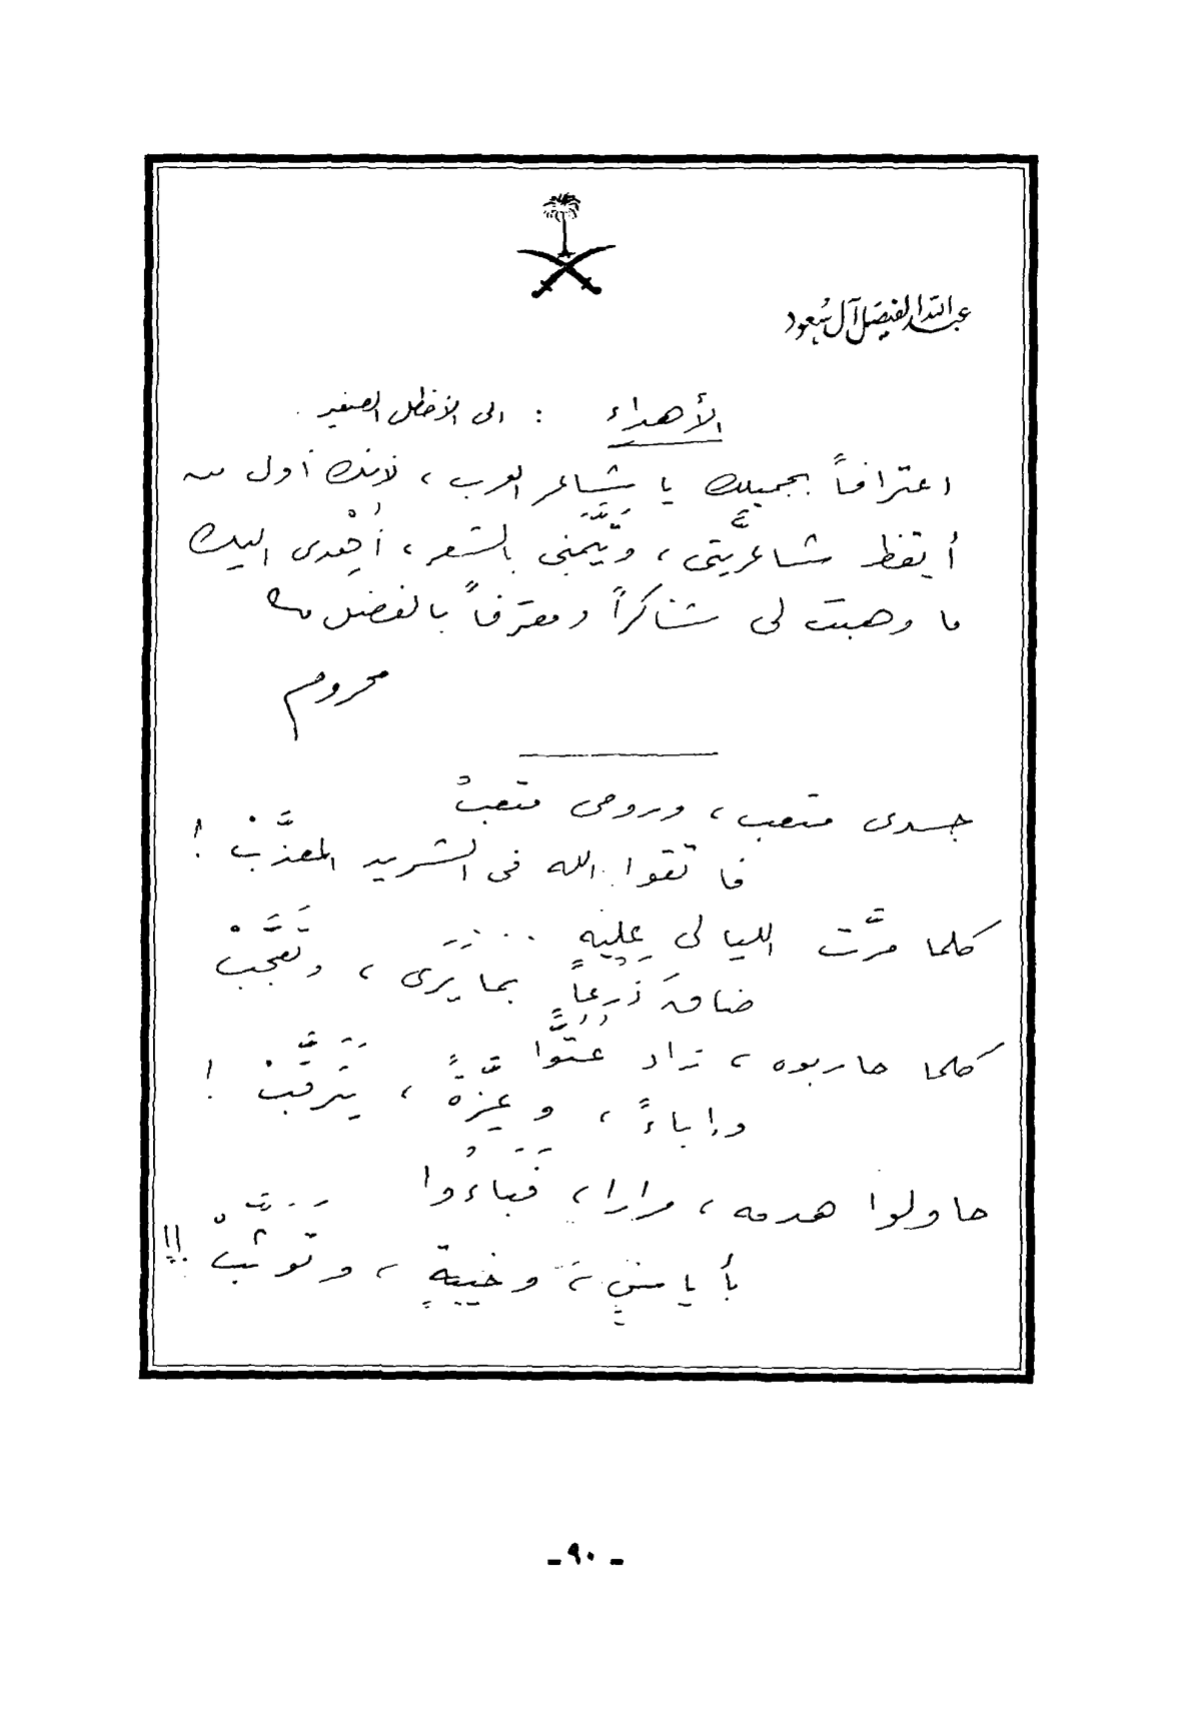 عبد الله الفيصل آل سعود
الأهداء : الى الأخطل الصغير
اعترافاً بجميلك يا شاعر العرب ، لأنك أول من
أيقظ شاعريَّتي ، وتيَّمني بالشعر ، أُهْدى اليك
ما وهبت لى شاكراً ومعترفاً بالفضل منك
محروم
جسدى متعب ، وروحى متعبُ
فاتقوا الله فى الشريد المعذَّبْ !
كلما مرَّت الليالى عليه ...
ضاقَ ذرعاً بما يَرَى ، وتَعَجَّبْ
كلما حاربوه ، زاد عُتُوًّا
وإباءً ، وعِزَّةً ، يَتَرقَّبْ !
حاولوا هدمه ، مرارا ، فَبَاءُوا
بأيا ، وخيبةٍ ، وتَوَثُّبْ !!
- ٩٠ -